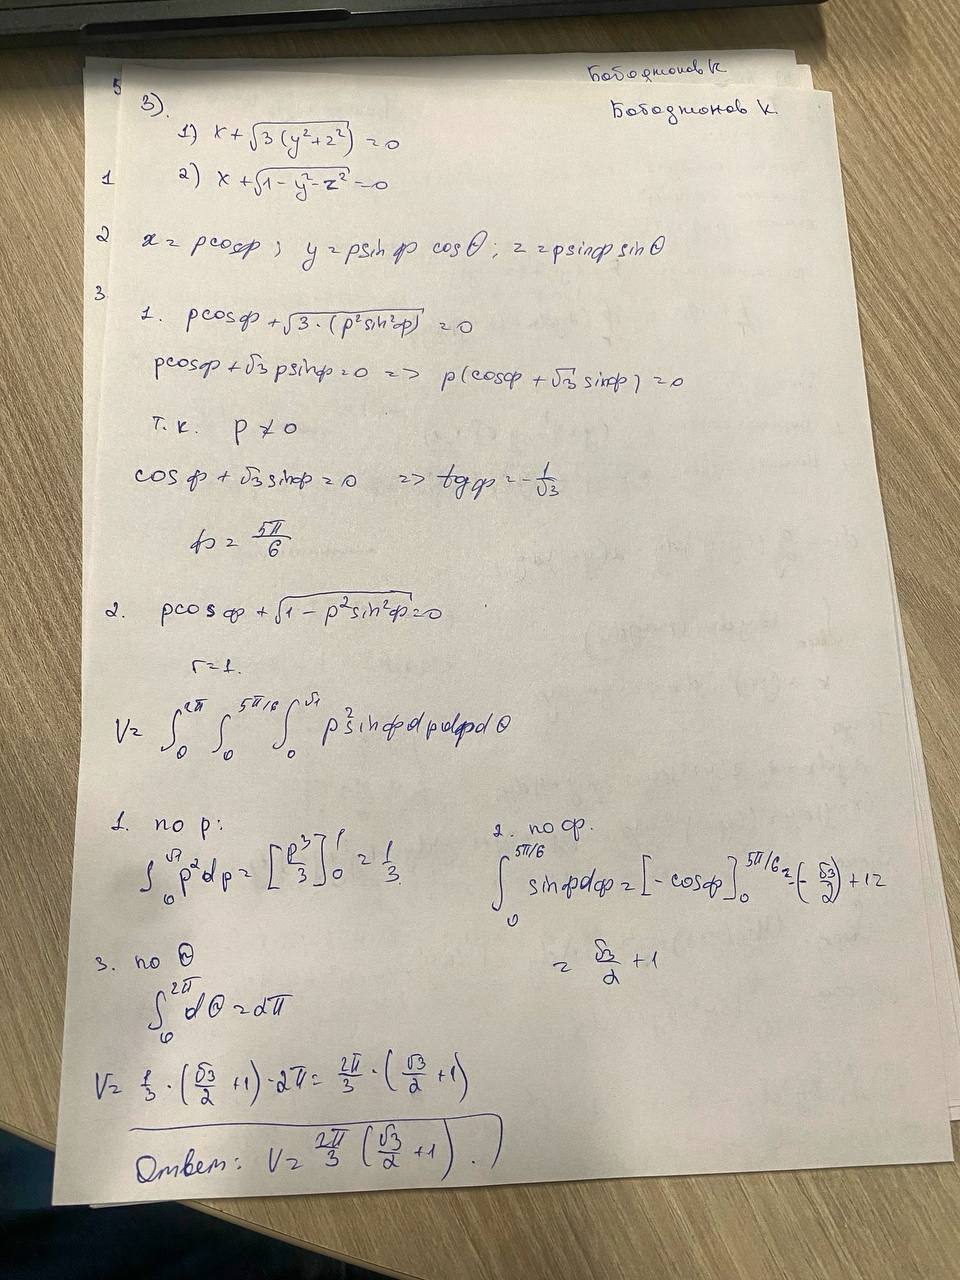 Бабаджонов К
Бабаджонов К.
5
1
2
3
3).
1) x + √3(y²+z²) = 0
2) x + √1 - y² - z² = 0
x = ρcosφ; y = ρsinφ cosθ; z = ρsinφ sinθ
1. ρcosφ + √3·(ρ²sin²φ) = 0
ρcosφ + √3 ρsinφ = 0 => ρ(cosφ + √3 sinφ) = 0
т.к. ρ ≠ 0
cosφ + √3 sinφ = 0 => tgφ = -1/√3
φ = 5π/6
2. ρcosφ + √1 - ρ²sin²φ = 0
r = 1.
V = ∫₀^2π ∫₀^5π/6 ∫₀^√1 ρ² sinφ dρ dφ dθ
1. по ρ:
∫₀^√1 ρ² dρ = [ρ³/3]₀^1 = 1/3.
2. по φ.
∫₀^5π/6 sinφ dφ = [-cosφ]₀^5π/6 = -(-√3/2) + 1 =
= √3/2 + 1
3. по θ
∫₀^2π dθ = 2π
V = 1/3 · (√3/2 + 1) · 2π = 2π/3 · (√3/2 + 1)
Ответ: V = 2π/3 (√3/2 + 1).